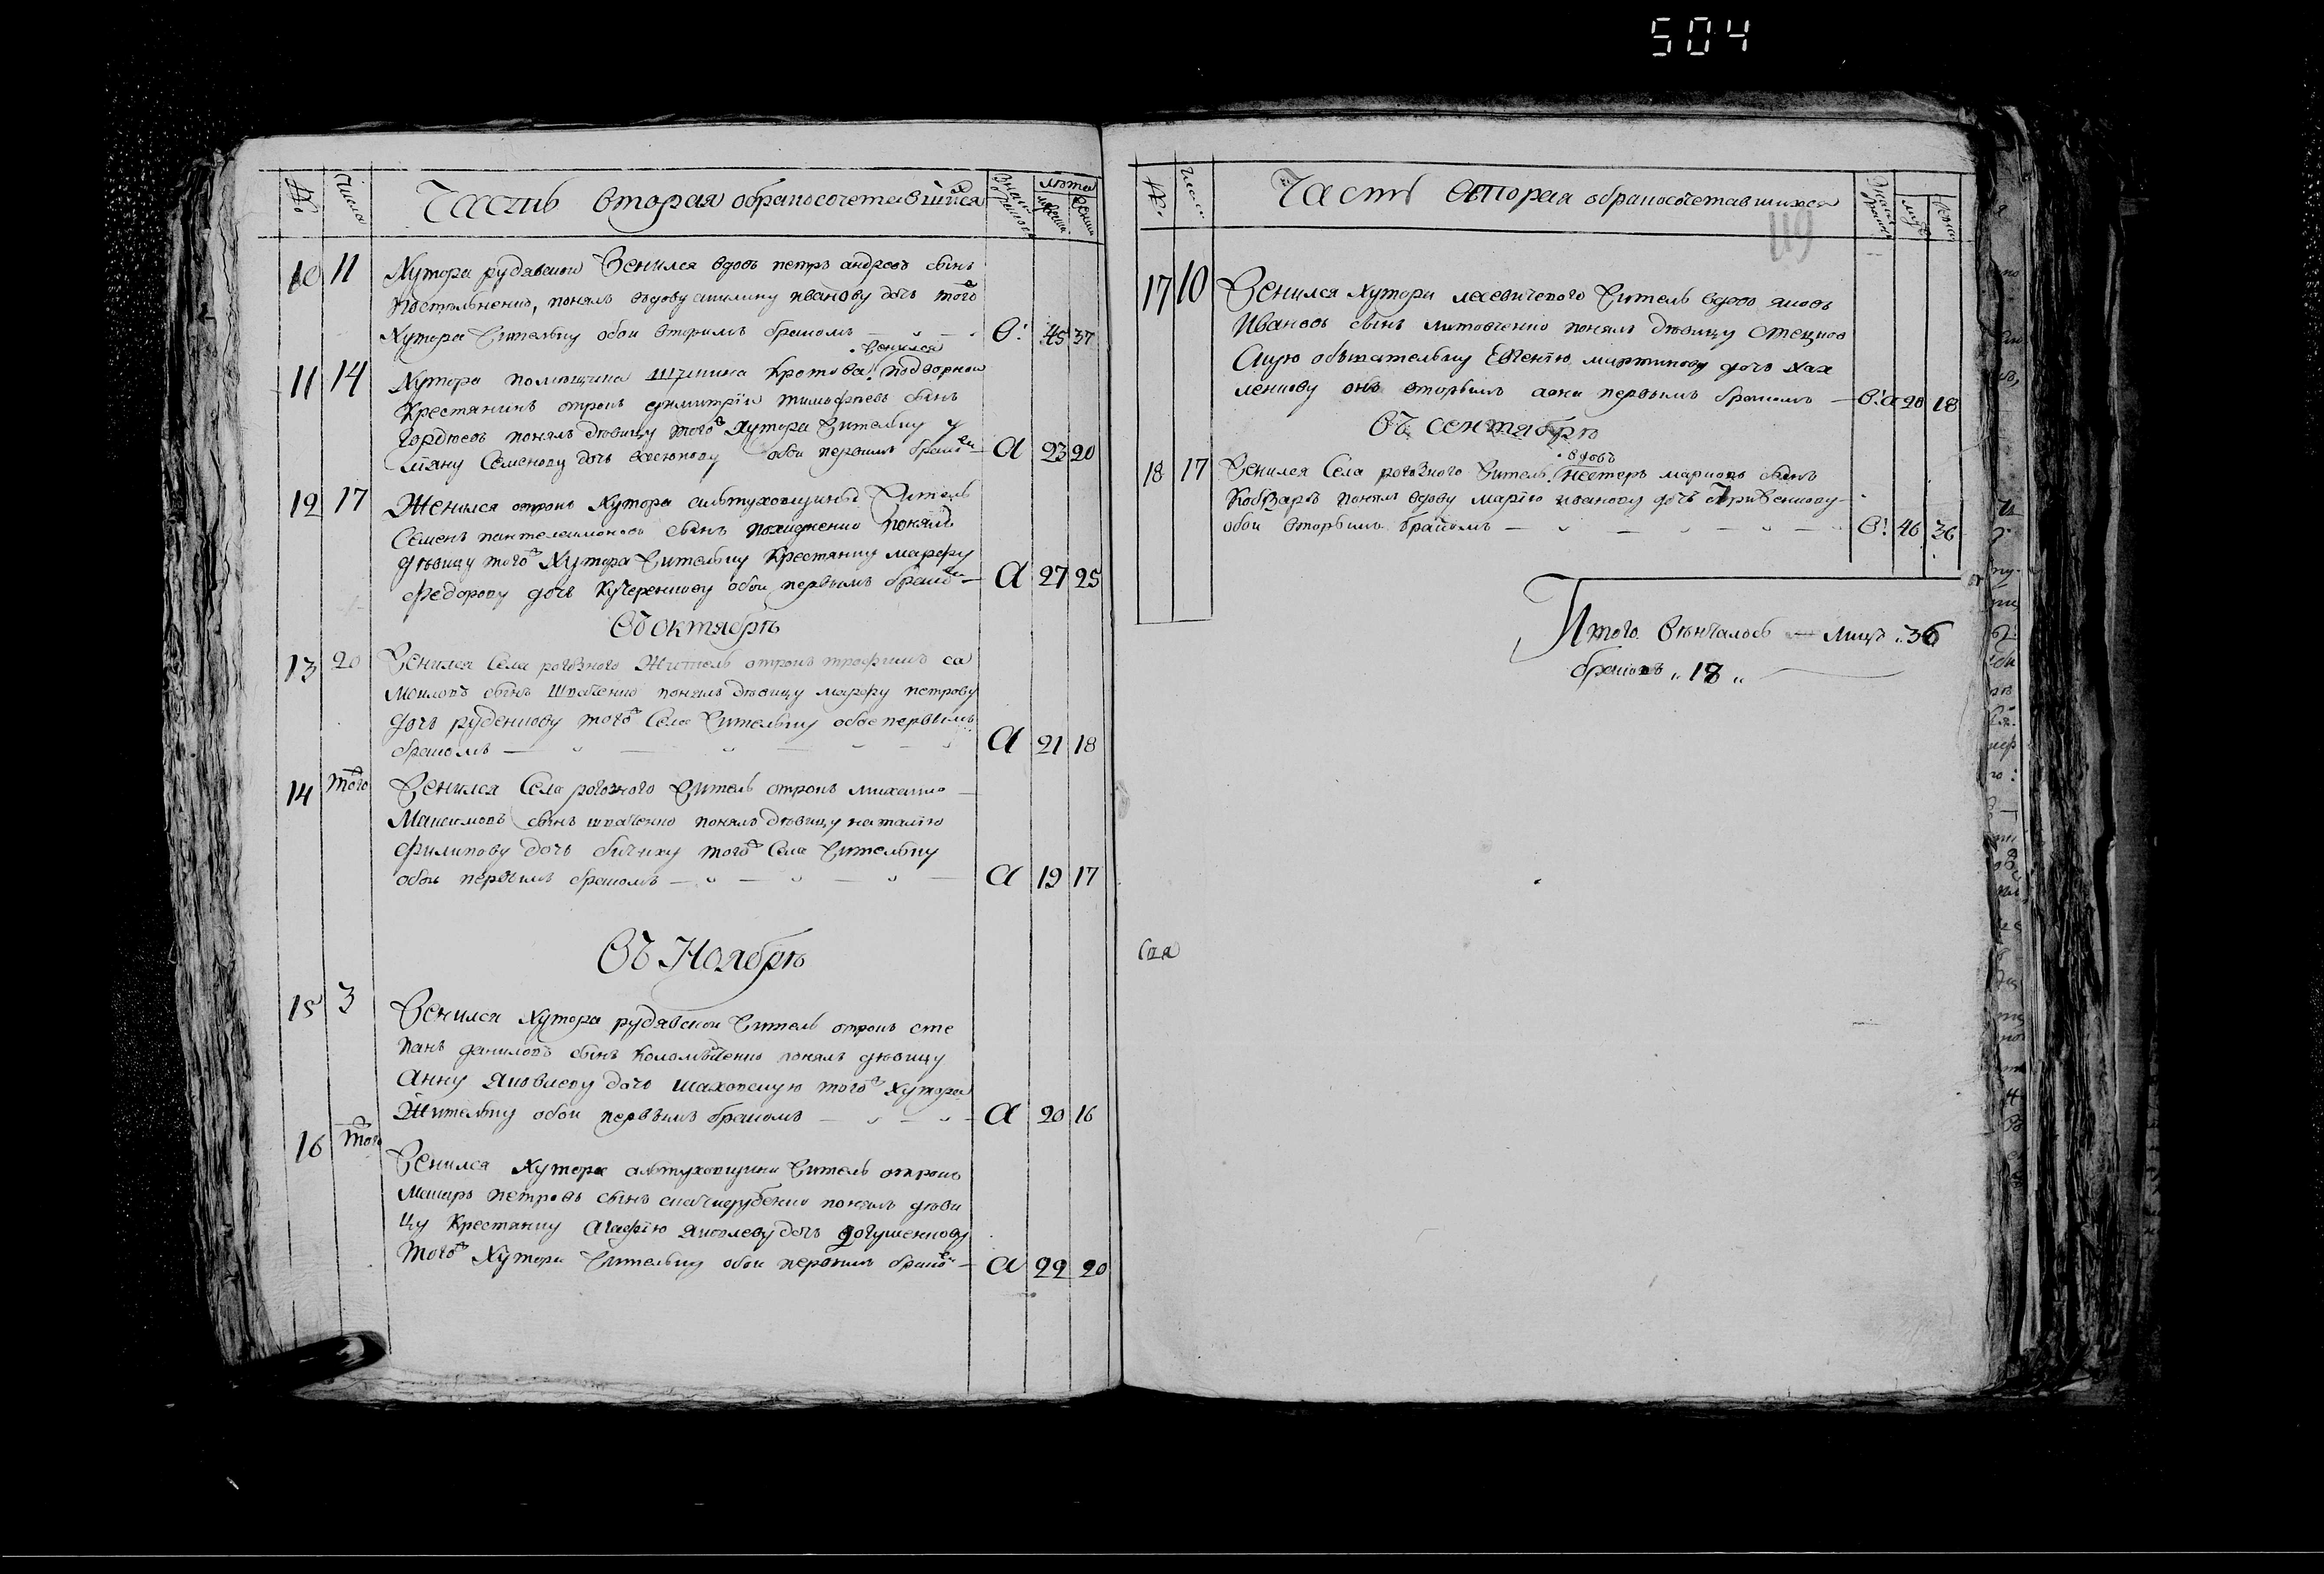 504
№
Числа
Часть вторая обракосочетавшихся
лѣта
10 11 Хутора рудявской Женился вдовъ петръ андреев сынъ
постольненко, понялъ вдову акилину иванову дочь того
Хутора Жителку обои вторимъ бракомъ В: 45 37
Женился
11 14 Хутора помѣщика Кротова подворной
Крестянинъ отрокъ димитрій тимофеевъ сынъ
Гордѣевъ понялъ дѣвицу того Хутора Жителку у
лляну Семенову дочь обои первимъ брако А 23 20
12 17 Женился отрокъ Хутора алтуховщины Житель
Семенъ пантелеимоновъ сынъ понялъ
дѣвицу того Хутора Жителку Крестянку марфу
Федорову дочь Кучеренкову обои первымъ брако А 27 25
Въ октябрѣ
13 20 Женился Села рогозного Житель отрокъ трофимъ са
моиловъ сынъ Шпаченко понялъ дѣвицу марфу петрову
дочь руденкову того Села Жителку обое первымъ
бракомъ А 21 18
14 того Женился Села рогозного Житель отрокъ михаило
Максимовъ сынъ шпаченко понялъ дѣвицу наталію
Филипову дочь бичиху того Села Жителку
обои первымъ бракомъ А 19 17
Въ Ноябрѣ
15 3 Женился Хутора рудявской Житель отрокъ сте
панъ даниловъ сынъ Коломѣйченко понялъ дѣвицу
Анну Яковлеву дочь шаховскую того Хутора
Жителку обои первымъ бракомъ А 20 16
16 того Женился Хутора алтуховщини Житель отрокъ
Макаръ петровъ сынъ понялъ дѣви
цу Крестянку Агафію Яковлеву дочь
того Хутора Жителку обои первимъ брако А 22 20
№
Числа
Часть вторая обракосочетавшихся
119
17 10 Женился Хутора Житель вдовъ яковъ
Ивановъ сынъ литовченко понялъ дѣвицу стецков
скую обывателку Евгенію мартинову дочь пах
ленкову онъ вторымъ а она первымъ бракомъ В:а 20 18
Въ сентябрѣ
вдовъ
18 17 Женился Села рогозного Житель нестеръ марковъ сынъ
Кобзаръ понялъ вдову марію иванову дочь
обои вторымъ бракомъ В: 46 36
Итого вѣнчалось лицъ 36
браковъ „18„
сія